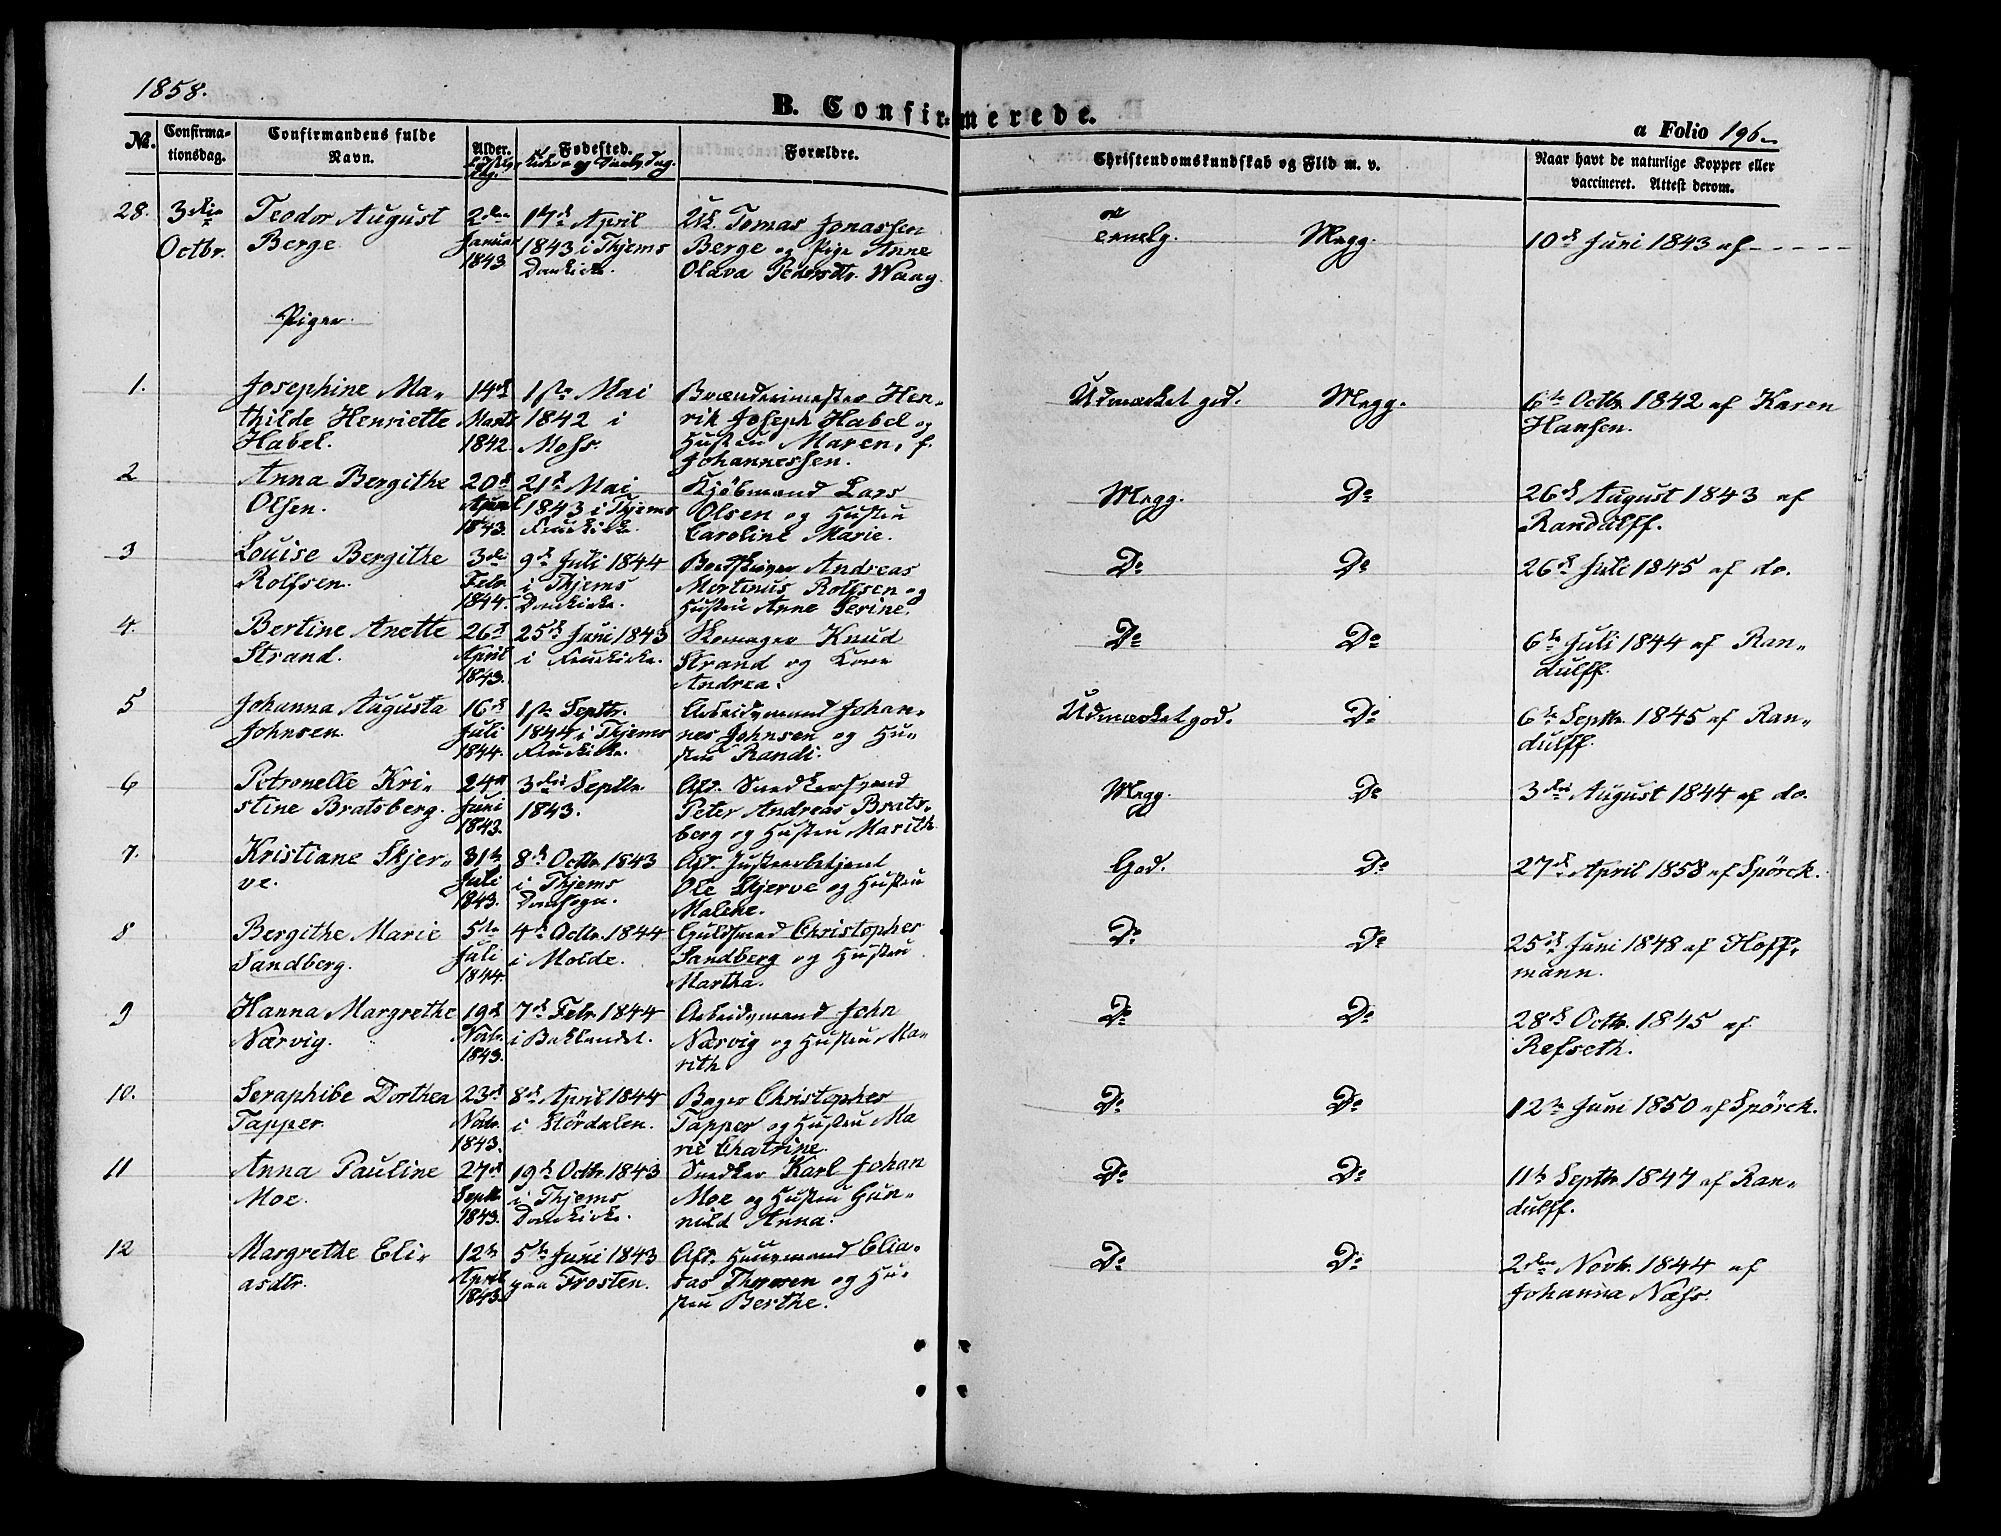 1858.
B. Confirmerede.
a Folio 196
No.
Confirma-
tionsdag.
Confirmandens fulde
Navn.
Alder.
Fødested.
og Daabsdag.
Forældre.
Christendomskundskab og Flid m. v.
Naar havt de naturlige Kopper eller
vaccineret. Attest derom.
28.
3die
Octbr.
Teodor August
Berge
2den
Januar
1843
17de April
1843 i Thjems
Domkirke.
Uk. Tomas Jonassen
Berge og Pige Anne
Olava Pedersdtr. Waag
Megg.
10de Juni 1843 af - - - - -
Piger.
1.
Josephine Ma-
thilde Henriette
Habel.
14de
Marts
1842.
1ste Mai
1842 i
Moss.
Brænderimester Hen-
rik Joseph Habel og
Hustru Maren, f.
Johannessen.
Udmærket god.
Megg.
6te Octbr. 1842 af Karen
Hansen.
2
Anna Bergithe
Olsen.
20de
April
1843.
21de Mai
1843 i Thjems
Fruekirke.
Kjøbmand Lars
Olsen og Hustru
Caroline Marie.
Megg.
Do
26de August 1843 af
Randulff.
3
Louise Bergithe
Rolfsen.
3die
Febr.
1844.
9de Juli 1844
i Thjems
Domkirke.
Andreas
Mortinus Rolfsen og
Hustru Anne Serine.
Do
Do
26de Juli 1845 af do.
4.
Bertine Anette
Strand.
26de
April
1843.
25de Juni 1843
i Fruekirke.
Skomager Knud
Strand og Kone
Andrea.
Do
Do
6te Juli 1844 af Ran-
dulff.
5
Johanna Augusta
Johnsen.
16de
Juli
1844.
1ste Septbr.
1844 i Thjems
Fruekirke.
Arbeidsmand Johan-
nes Johnsen og Hu-
stru Randi.
Udmærket god.
Do
6te Septbr. 1845 af Ran-
dulff.
6
Petronelle Kri-
stine Bratsberg.
24de
Juni
1843.
3die Septbr.
1843.
Afd. Snedkersvend
Peter Andreas Brats-
berg og Hustru Marith
Megg.
Do
3die August 1844 af do.
7.
Kristiane Skjer-
ve.
31te
Juli
1843.
8de Octbr. 1843
i Thjems
Domsogn.
Afd.
Ole Skjerve og Hustru
Malene.
God.
Do
27de April 1858 af Spörck.
8
Bergithe Marie
Sandberg.
5te
Juli
1844.
4de Octbr. 1844
i Molde.
Guldsmed Christopher
Sandberg og Hustru
Martha.
Do
Do
25de Juni 1848 af Hoff-
mann.
9
Hanna Margrethe
Nærvig.
19de
Novbr.
1843.
7de Febr. 1844
i Baklandet.
Arbeidsmand John
Nærvig og Hustru Ma-
rith
Do
Do
28de Octbr. 1845 af
Refseth.
10.
Seraphibe Dorthea
Tapper.
23de
Novbr.
1843.
8de April 1844
i Stördalen.
Bager Christopher
Tapper og Hustru Ma
rie Chatrine.
Do
Do
12te Juni 1850 af Spörck.
11
Anna Pauline
Moe.
27de
Septbr.
1843.
19de Octbr. 1843
i Thjems
Domkirke.
Snedker Karl Johan
Moe og Hustru Gun-
nild Anna.
Do
Do
11te Septbr. 1847 af Ran-
dulff.
12
Margrethe Eli-
asdtr.
12te
April
1843.
5te Juni 1843
paa Frosten.
Afd. Huusmand Elia-
sas og Hu-
stru Berthe.
Do
Do
2den Novbr. 1844 af
Johanna Næss.